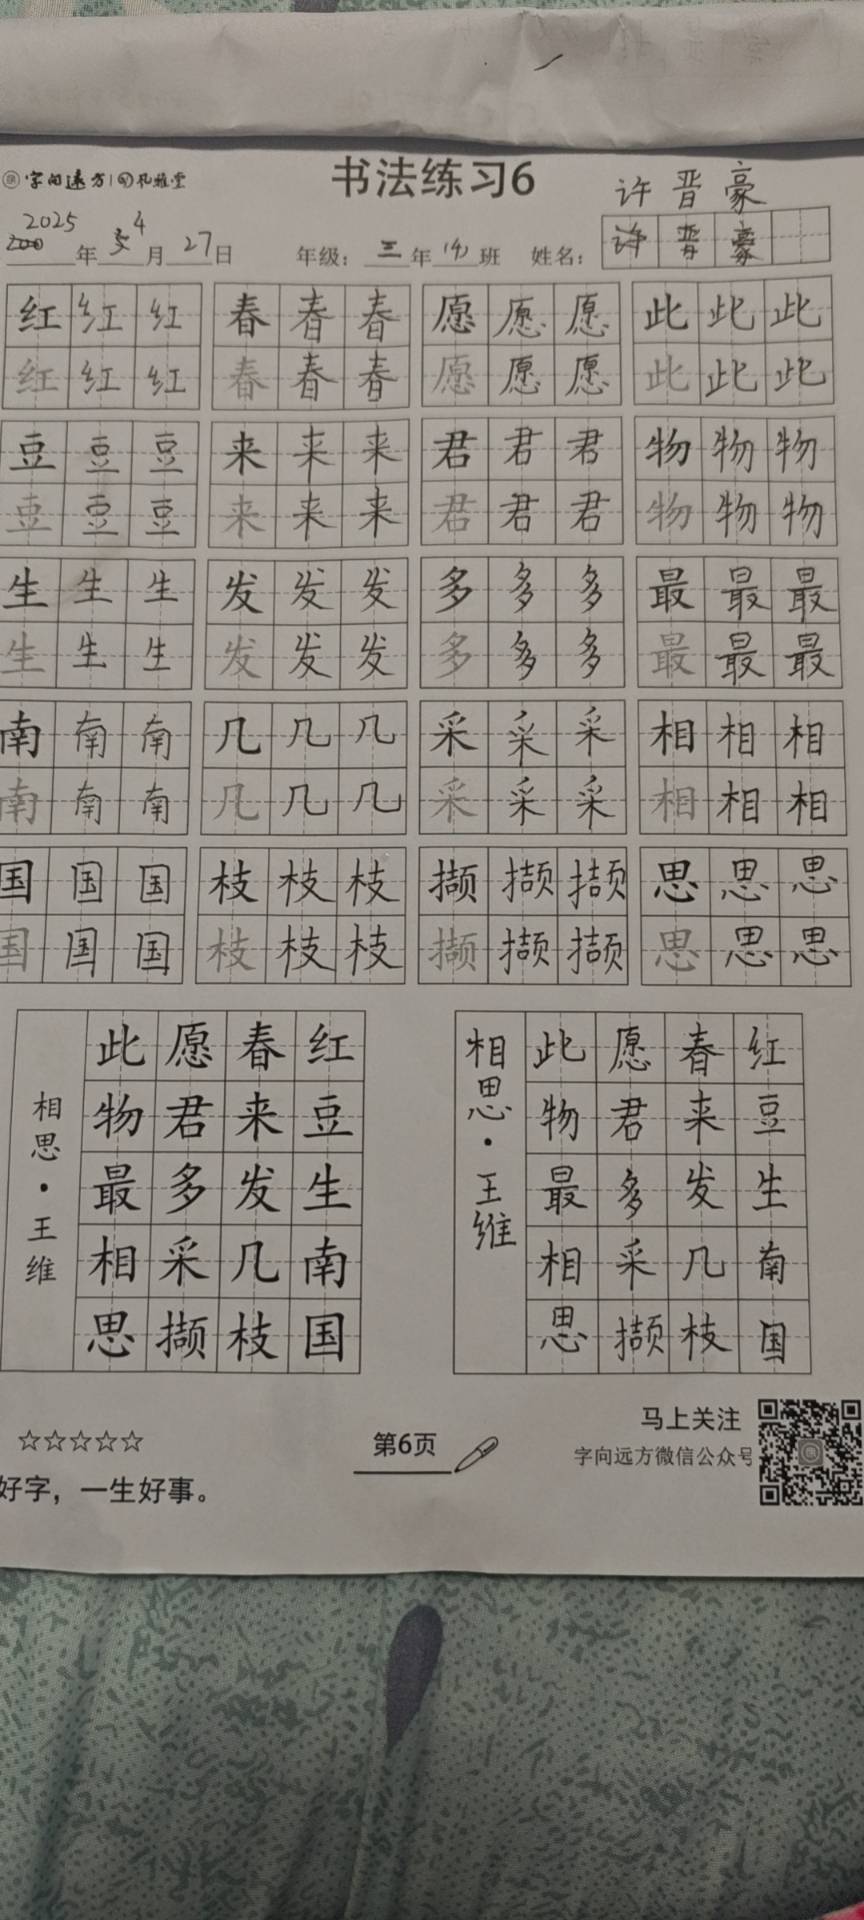 字向远方 孔雅堂
书法练习6
许晋豪
2025年4月27日 年级：三年(4)班 姓名：许晋豪
红红红 春春春 愿愿愿 此此此
红红红 春春春 愿愿愿 此此此
豆豆豆 来来来 君君君 物物物
豆豆豆 来来来 君君君 物物物
生生生 发发发 多多多 最最最
生生生 发发发 多多多 最最最
南南南 几几几 采采采 相相相
南南南 几几几 采采采 相相相
国国国 枝枝枝 撷撷撷 思思思
国国国 枝枝枝 撷撷撷 思思思
红豆生南国
春来发几枝
愿君多采撷
此物最相思
相思·王维
红豆生南国
春来发几枝
愿君多采撷
此物最相思
相思·王维
☆☆☆☆☆
好字，一生好事。
第6页
马上关注
字向远方微信公众号